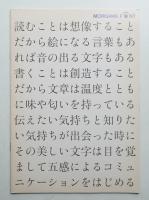 MORISAWA
読むことは想像すること
だから絵になる言葉もあ
れば音の出る文字もある
書くことは創造すること
だから文章は温度ととも
に味や匂いを持っている
伝えたい気持ちと知りた
い気持ちが出会った時に
その美しい文字は目を覚
まして五感によるコミュ
ニケーションをはじめる